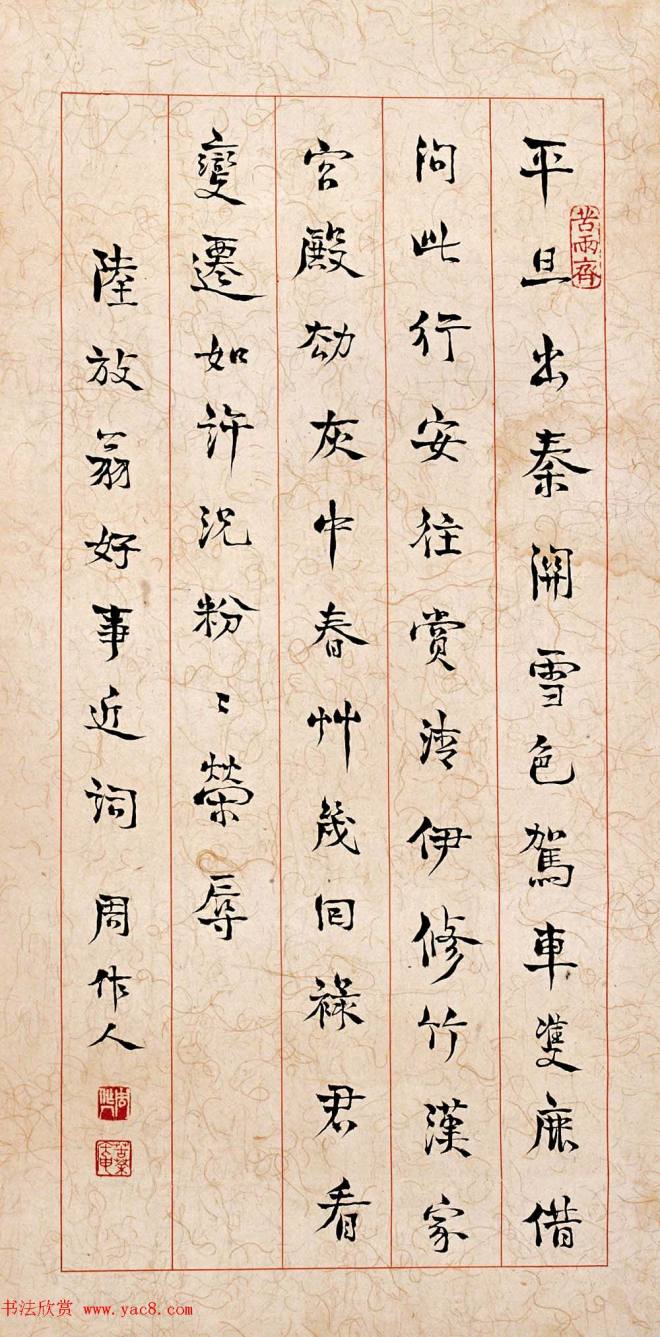 苦雨齋
平旦出秦關雪色駕車雙鹿借
問此行安往賞清伊修竹漢家
宮殿劫灰中春艸幾回綠君看
變遷如許況紛〻榮辱
陸放翁好事近詞 周作人
书法欣赏 www.yac8.com